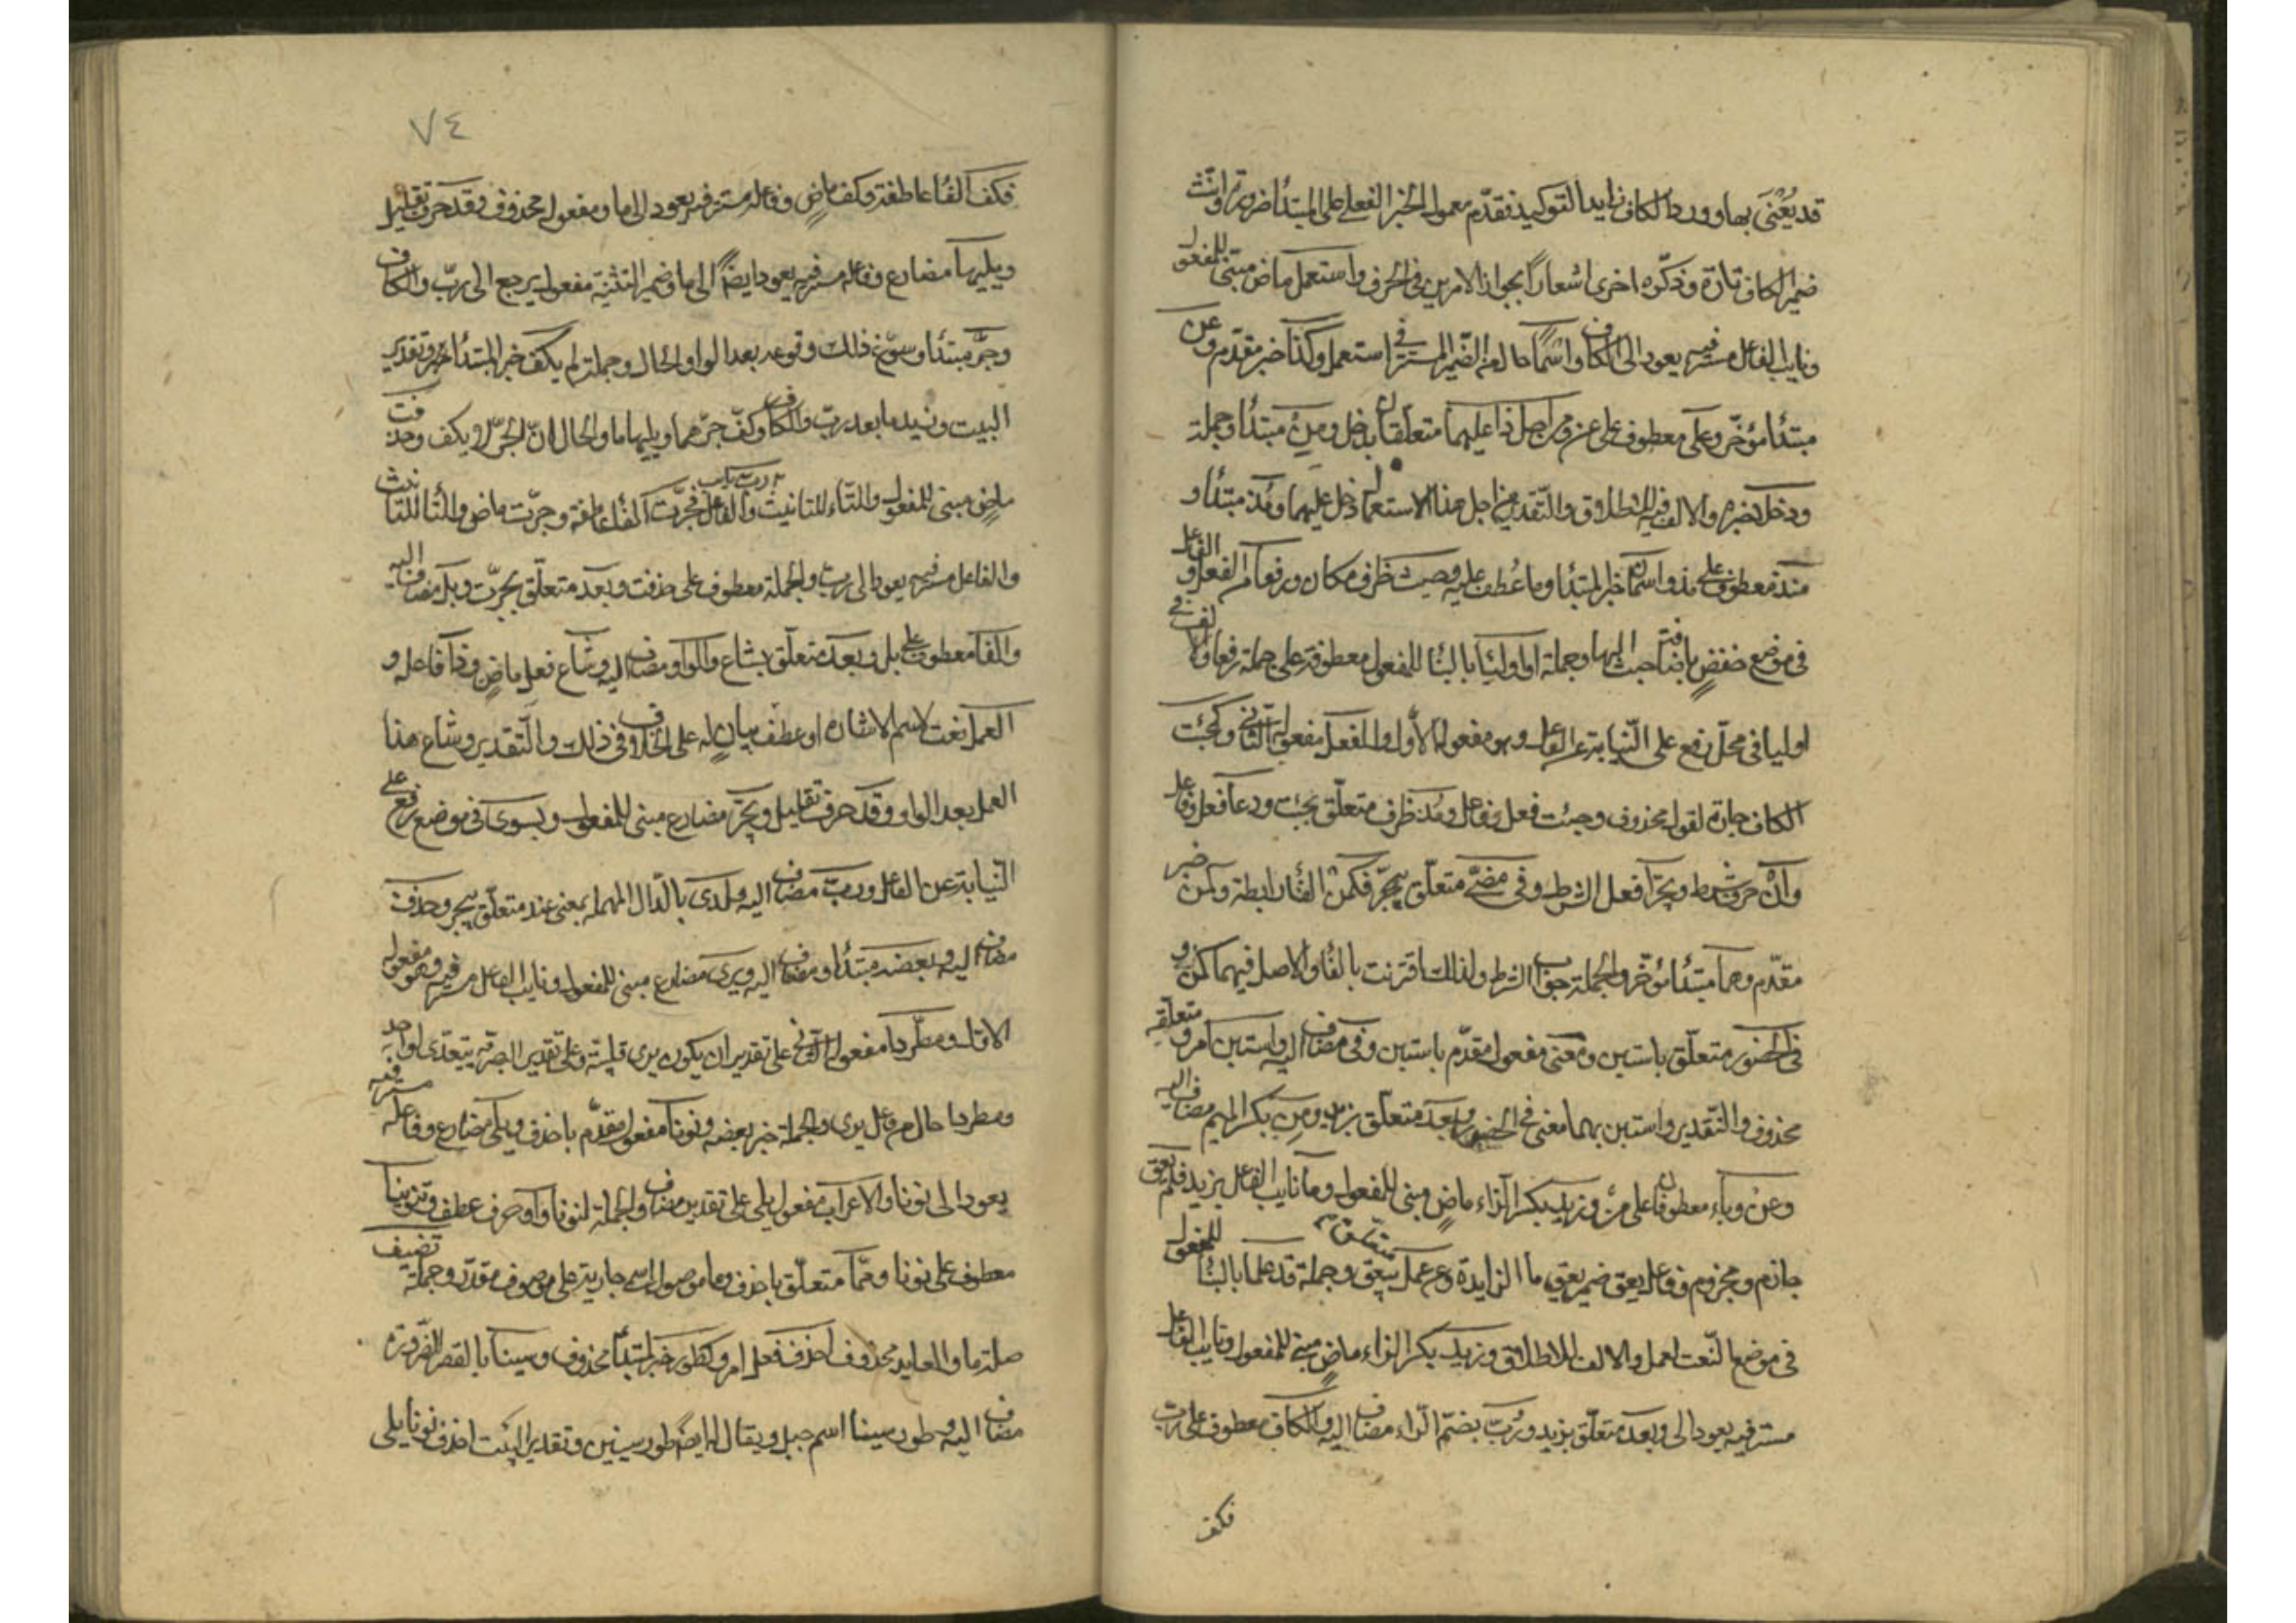 قد يُعْنَى بها وورد الكاف زايدا لتوكيد نقدّم معمول الخبر الفعلي على المبتدأ ضرورة وانّث
ضمير الكاف تارة وذكّره اخرى اشعاراً بجواز الامرين في الحرف واستعمل ماض مبني للمفعول
ونايب الفاعل مستتر فيه يعود الى الكاف واسماً حال من الضمير المستتر في استعمل وكذا خبر مقدّم وعن
مبتدأ مؤخّر وعلى معطوف على عن ومن اجل ذا عليهما متعلّقان بدخل ومِنْ مبتدأ وجملة
ودخل خبره والالف فيه للاطلاق والتقدير من اجل هذا الاستعمال دخل عليهما ومُذ مبتدأ و
منذ معطوف على مذ واسمان خبر المبتدأ وما عُطف عليه وحيث ظرف مكان ورفعا من الفعل والفاعل
في موضع خفضٍ باضافة حيث اليها وجملة او اوليا بالبنأ للمفعول معطوفة على جملة رفعا والالف في
اوليا في محلّ رفع على النّيابة عن الفاعل وهو مفعوله الاوّل والفعل مفعوله الثاني وكجئت
الكاف جارة لقول محذوف وجئت فعل وفاعل ومُذ ظرف متعلّق بجئت ودعا فعل وفاعل
وانْ حرف شرط ويجرّا فعل الشرط وفي مضيّ متعلّق بيجرّ فكمن الفأ رابطة وكمن خبر
مقدّم وهما مبتدأ مؤخّر والجملة جواب الشرط ولذلك اقترنت بالفأ والاصل فيهما كمن و
في الحضور متعلّق باستبن ومعنى مفعول مقدّم باستبن وفي مضاف اليه واستبن امر ومتعلقه
محذوف والتّقدير واستبن بهما معنى في الحضور وبعد متعلّق بزيد ومِن بكسر الميم مضاف اليه
وعن وباء معطوفان على مِنْ وزيد بكسر الزاء ماضٍ مبني للمفعول وما نايب الفاعل بزيد فلم يعق
جازم ومجزوم وفاعل يعق ضمير يعود الى ما الزايدة وعن عمل متعلق بيعق وجملة قد علما بالبنأ للمفعول
في موضع النّعت لعمل والالف للاطلاق وزيد بكسر الزاء ماضٍ مبني للمفعول ونايب الفاعل
مستتر فيه يعود الى ما وبعد متعلّق بزيد ورُبّ بضمّ الرّاء مضاف اليه والكاف معطوف على ربّ
فكف
٧٤
فكف الفأ عاطفة وكف ماضٍ وفاعله مستتر فيه يعود الى ما ومفعوله محذوف وقد حرف تقليل
ويليهما مضارع وفاعله مستتر فيه يعود ايضاً الى ما وضمير التثنية مفعوله يرجع الى ربّ والكاف
وجرّ مبتدأ وسوّغ ذلك وقوعه بعد الواو الحال وجملة لم يكف خبر المبتدأ وتقدير
البيت وزيد ما بعد ربّ والكاف وكفّ جرّهما ويليهما ما والحال انّ الجرّ لم يكف وحذفت
ماضٍ مبني للمفعول والتّاء للتانيث والفاعل فجرّت الفأ عاطفة وجرّت ماض والتّا للتانيث
والفاعل مستتر فيه يعود الى ربّ والجملة معطوف على حذفت وبعد متعلّق بجرّت وبل مضاف اليه
والفا معطوف على بل وبعد متعلّق بشاع والواو مضاف اليه وشاع فعل ماضٍ وذا فاعله و
العمل نعت لاسم الاشارة او عطف بيان له على الخلاف في ذلك والتّقدير وشاع هذا
العمل بعد الواو وقد حرف تقليل ويجرّ مضارع مبني للمفعول وبسوى في موضع رفع على
النّيابة عن الفاعل وربّ مضاف اليه ولدى بالدّال المهملة بمعنى عند متعلّق بيجر وحذف
مضاف اليه وبعضه مبتدأ ومضاف اليه ويرى مضارع مبني للمفعول ونايب الفاعل مستتر فيه وهو مفعوله
الاوّل ومطّردا مفعوله الثاني على تقدير ان يكون يرى قلبيّة وعلى تقدير البصرية يتعدى لواحد
ومطردا حال من فاعل يرى والجملة خبر بعضه ونونا مفعول مقدّم باحذف ويلى مضارع وفاعله مستتر فيه
يعود الى نونا والاعراب مفعول يلى على تقدير مضاف والجملة لنونا واو حرف عطف وتنوينا
معطوف على نونا وممّا متعلّق باحذف وما موصول اسمي جارية على موصوف مقدّر وجملة تضيف
صلة ما والعايد محذوف احذف فعل امر وكطور خبر لمبتدأ محذوف وسينا بالقصر للضّرورة
مضاف اليه وطور سينا اسم جبل ويقال له ايضاً طور سينين وتقدير البيت احذف نونا يلى